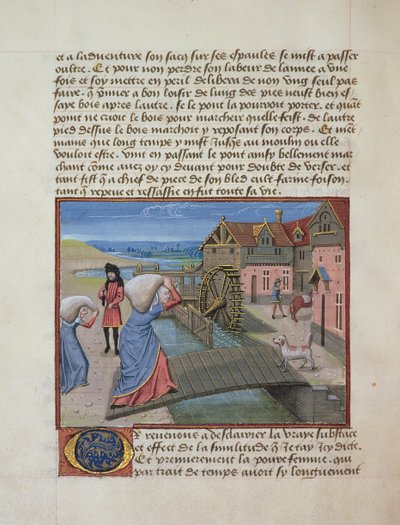 et a ladventure son sacq sur ses espaules se mist a passer
oultre. Et pour non perdre son labeur de lannee a une
fois et soy mettre en peril delibera de non ung seul pas
faire. q̄ vnner a bon loisir de lung des piez neust bien es-
saye bois apres lautre. se le pont la pourroit porter. et quāt
point ne croit le bois pour marcher quelle feist. de lautre
pied dessus le bois marchoit y reposant son corps. Et
que long temps y mist Jusque au moulin ou elle
vouloit estre. vint en passant le pont ainsy bellement mar
chant cōme avez oy cy devant pour doubte de verser. et
tant fist q̄ a chief de piece de son bled eult farine foison.
tant q̄ repeue et ressasiee en fut toute sa vie.
Or revenons a desclairier la vraye substāce
et effect de la similitude q̄ Je tay Jcy dicte.
Et premierement la povre femme. qui
par trait de temps avoit sy longuement